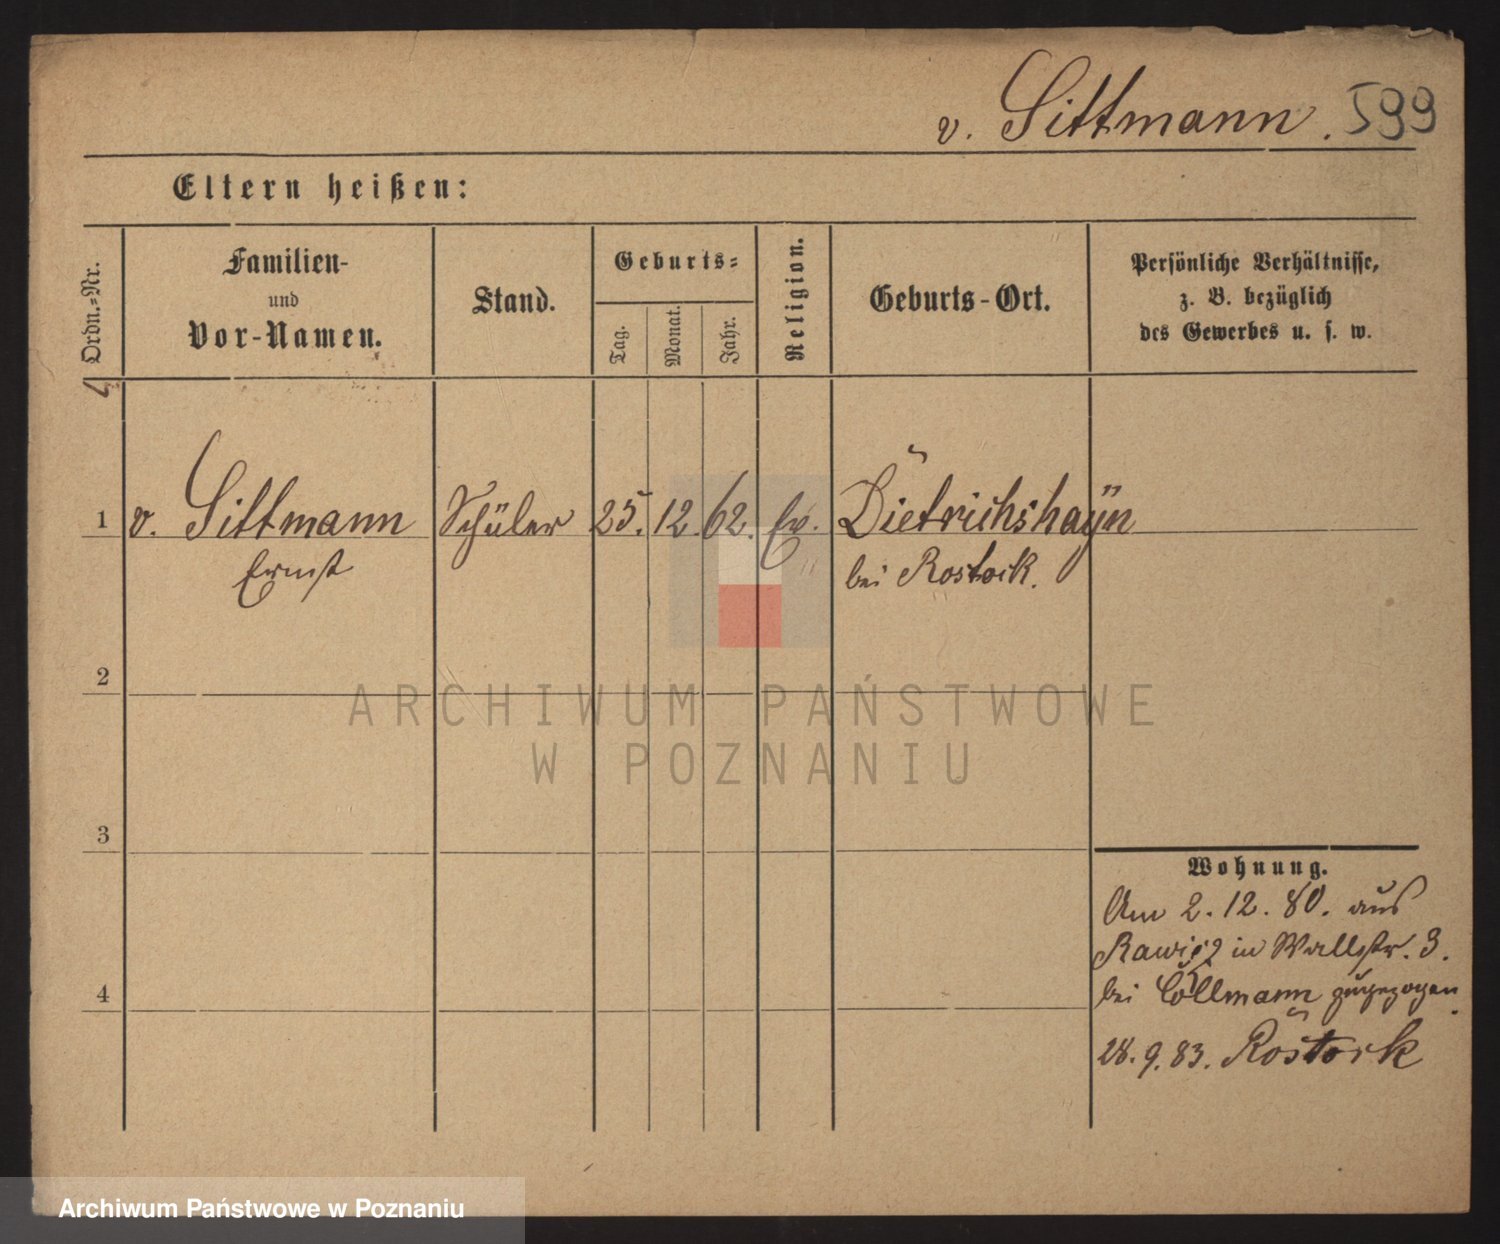 v. Sittmann. 599
Eltern heißen:
Ordn.-Nr.
Familien-
und
Vor-Namen.
Stand.
Geburts-
Tag.
Monat.
Jahr.
Religion.
Geburts-Ort.
Persönliche Verhältnisse,
z. B. bezüglich
des Gewerbes u. s. w.
1 v. Sittmann Schüler 25. 12. 62. Ev. Dietrichshayn
Ernst bei Rostock.
2
ARCHIWUM PAŃSTWOWE
W POZNANIU
3
Wohnung.
Am 2. 12. 80. aus
Rawicz in Wallstr. 3.
4 bei Cöllmann zugezogen.
28. 9. 83. Rostock
Archiwum Państwowe w Poznaniu